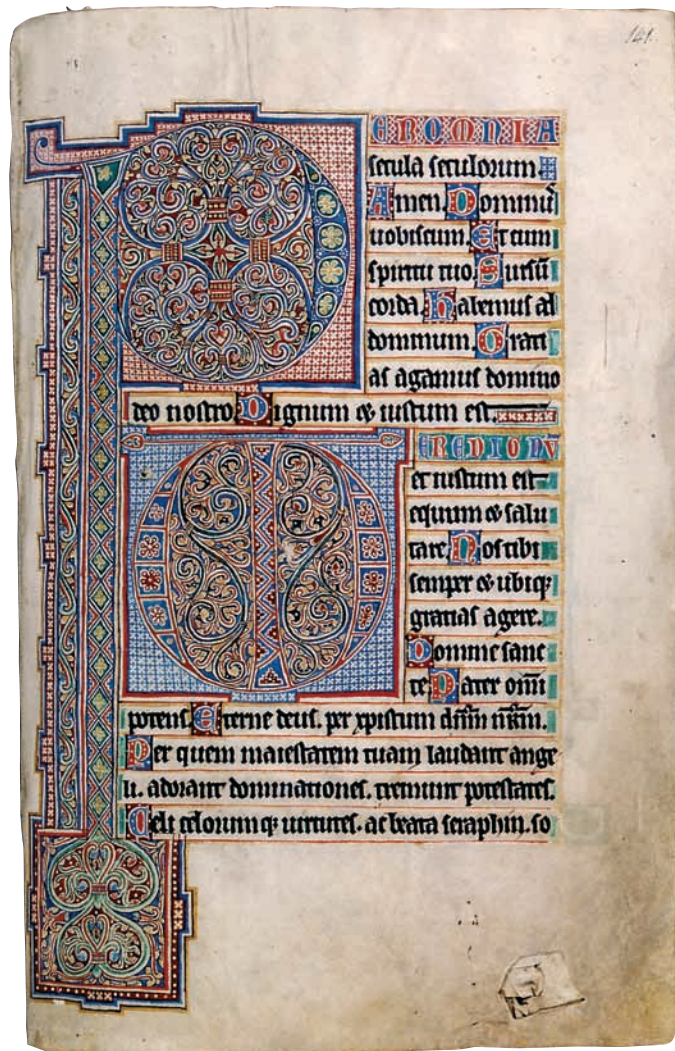 141.
P EROMNIA
secula seculorum.
Amen. Dominus
uobiscum. Et cum
spiritu tuo. Sursū
corda. Habemus ad
dominum. Grati
as agamus domino
deo nostro. Dignum & iustum est.
V EREDIGNV̄
et iustum est
equum & salu
tare. Nos tibi
semper & ubiq;
gratias agere.
Domine sanc
te. Pater omī
potens. Eterne deus. per xpistum dn̄m nr̄m.
Per quem maiestatem tuam laudant ange
li. adorant dominationes. tremunt potestates.
Celi celorum q; uirtutes. ac beata seraphin. so